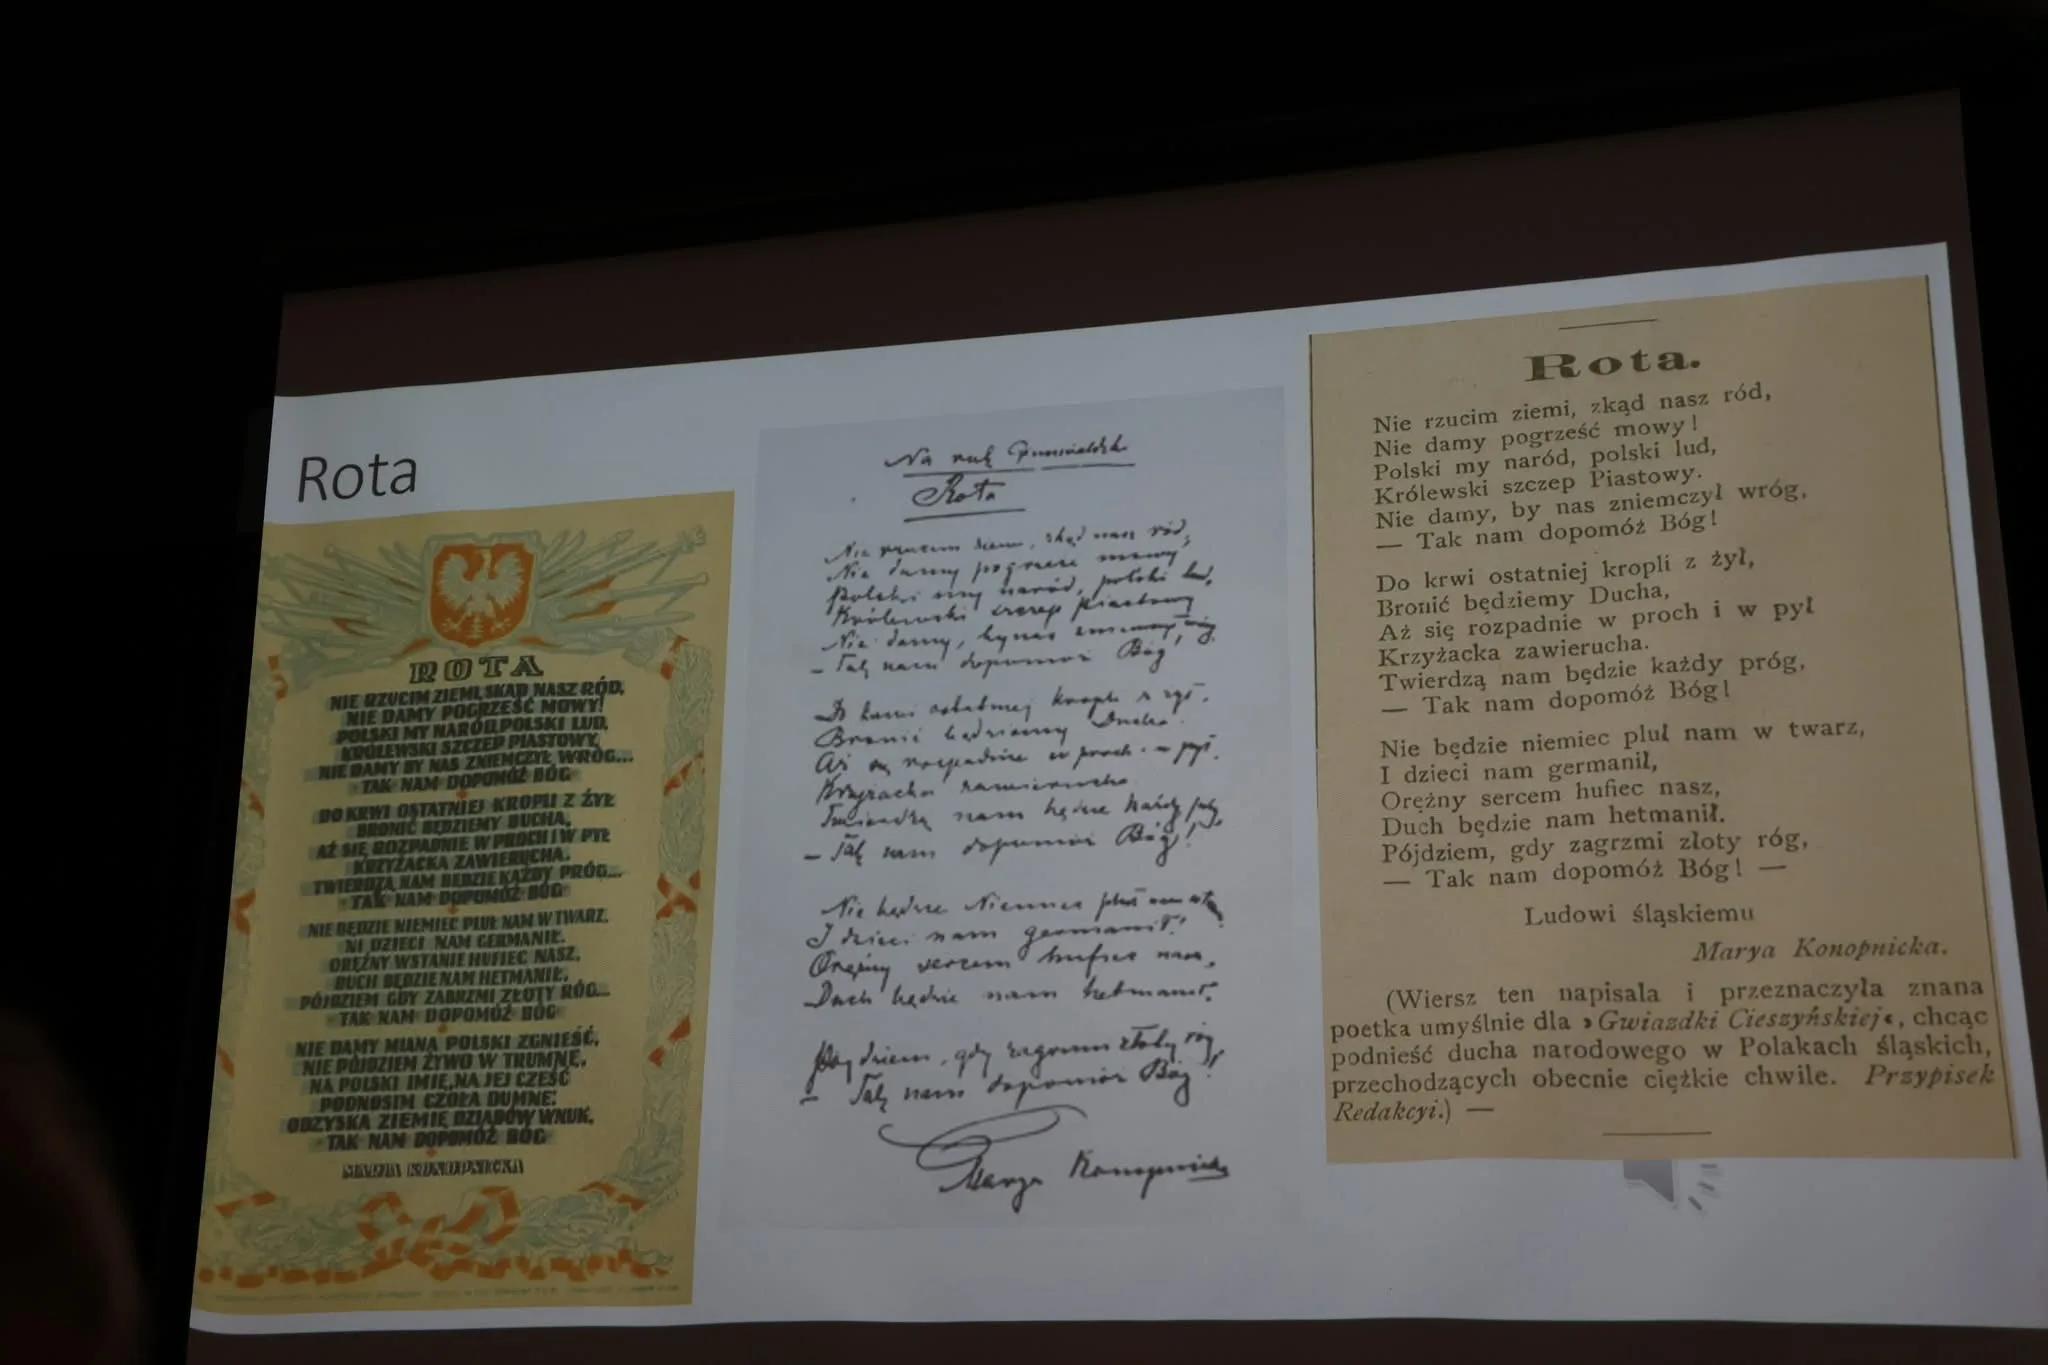 Rota
ROTA
NIE RZUCIM ZIEMI, SKĄD NASZ RÓD,
NIE DAMY POGRZEŚĆ MOWY!
POLSKI MY NARÓD, POLSKI LUD,
KRÓLEWSKI SZCZEP PIASTOWY,
NIE DAMY BY NAS ZNIEMCZYŁ WRÓG...
- TAK NAM DOPOMÓŻ BÓG
DO KRWI OSTATNIEJ KROPLI Z ŻYŁ
BRONIĆ BĘDZIEMY DUCHA,
AŻ SIĘ ROZPADNIE W PROCH I W PYŁ
KRZYŻACKA ZAWIERUCHA.
TWIERDZĄ NAM BĘDZIE KAŻDY PRÓG...
- TAK NAM DOPOMÓŻ BÓG
NIE BĘDZIE NIEMIEC PLUŁ NAM W TWARZ,
NI DZIECI NAM GERMANIŁ.
ORĘŻNY WSTANIE HUFIEC NASZ,
DUCH BĘDZIE NAM HETMANIŁ,
PÓJDZIEM GDY ZABRZMI ZŁOTY RÓG...
- TAK NAM DOPOMÓŻ BÓG
NIE DAMY MIANA POLSKI ZGNIEŚĆ,
NIE PÓJDZIEM ŻYWO W TRUMNĘ,
NA POLSKI IMIĘ, NA JEJ CZEŚĆ
PODNOSIM CZOŁA DUMNE:
ODZYSKA ZIEMIĘ DZIADÓW WNUK,
- TAK NAM DOPOMÓŻ BÓG
MARIA KONOPNICKA
Na rok Grunwaldzki
Rota
Nie rzucim ziemi, skąd nasz ród,
Nie damy pogrześć mowy
Polski my naród, polski lud,
Królewski szczep piastowy
Nie damy, by nas zniemczył wróg,
- Tak nam dopomóż Bóg!
Do krwi ostatniej kropli z żył.
Bronić będziemy Ducha.
Aż się rozpadnie w proch i w pył.
Krzyżacka zawierucha
Twierdzą nam będzie każdy próg,
- Tak nam dopomóż Bóg!
Nie będzie Niemiec pluł nam w twarz
I dzieci nam germanił!
Orężny sercem hufiec nasz,
Duch będzie nam hetmanił.
Pójdziem, gdy zagrzmi złoty róg,
- Tak nam dopomóż Bóg!
Marya Konopnicka
Rota.
Nie rzucim ziemi, zkąd nasz ród,
Nie damy pogrześć mowy!
Polski my naród, polski lud,
Królewski szczep Piastowy.
Nie damy, by nas zniemczył wróg,
— Tak nam dopomóż Bóg!
Do krwi ostatniej kropli z żył,
Bronić będziemy Ducha,
Aż się rozpadnie w proch i w pył
Krzyżacka zawierucha.
Twierdzą nam będzie każdy próg,
— Tak nam dopomóż Bóg!
Nie będzie niemiec pluł nam w twarz,
I dzieci nam germanił,
Orężny sercem hufiec nasz,
Duch będzie nam hetmanił.
Pójdziem, gdy zagrzmi złoty róg,
— Tak nam dopomóż Bóg! —
Ludowi śląskiemu
Marya Konopnicka.
(Wiersz ten napisala i przeznaczyła znana
poetka umyślnie dla »Gwiazdki Cieszyńskiej«, chcąc
podnieść ducha narodowego w Polakach śląskich,
przechodzących obecnie ciężkie chwile. Przypisek
Redakcyi.) —